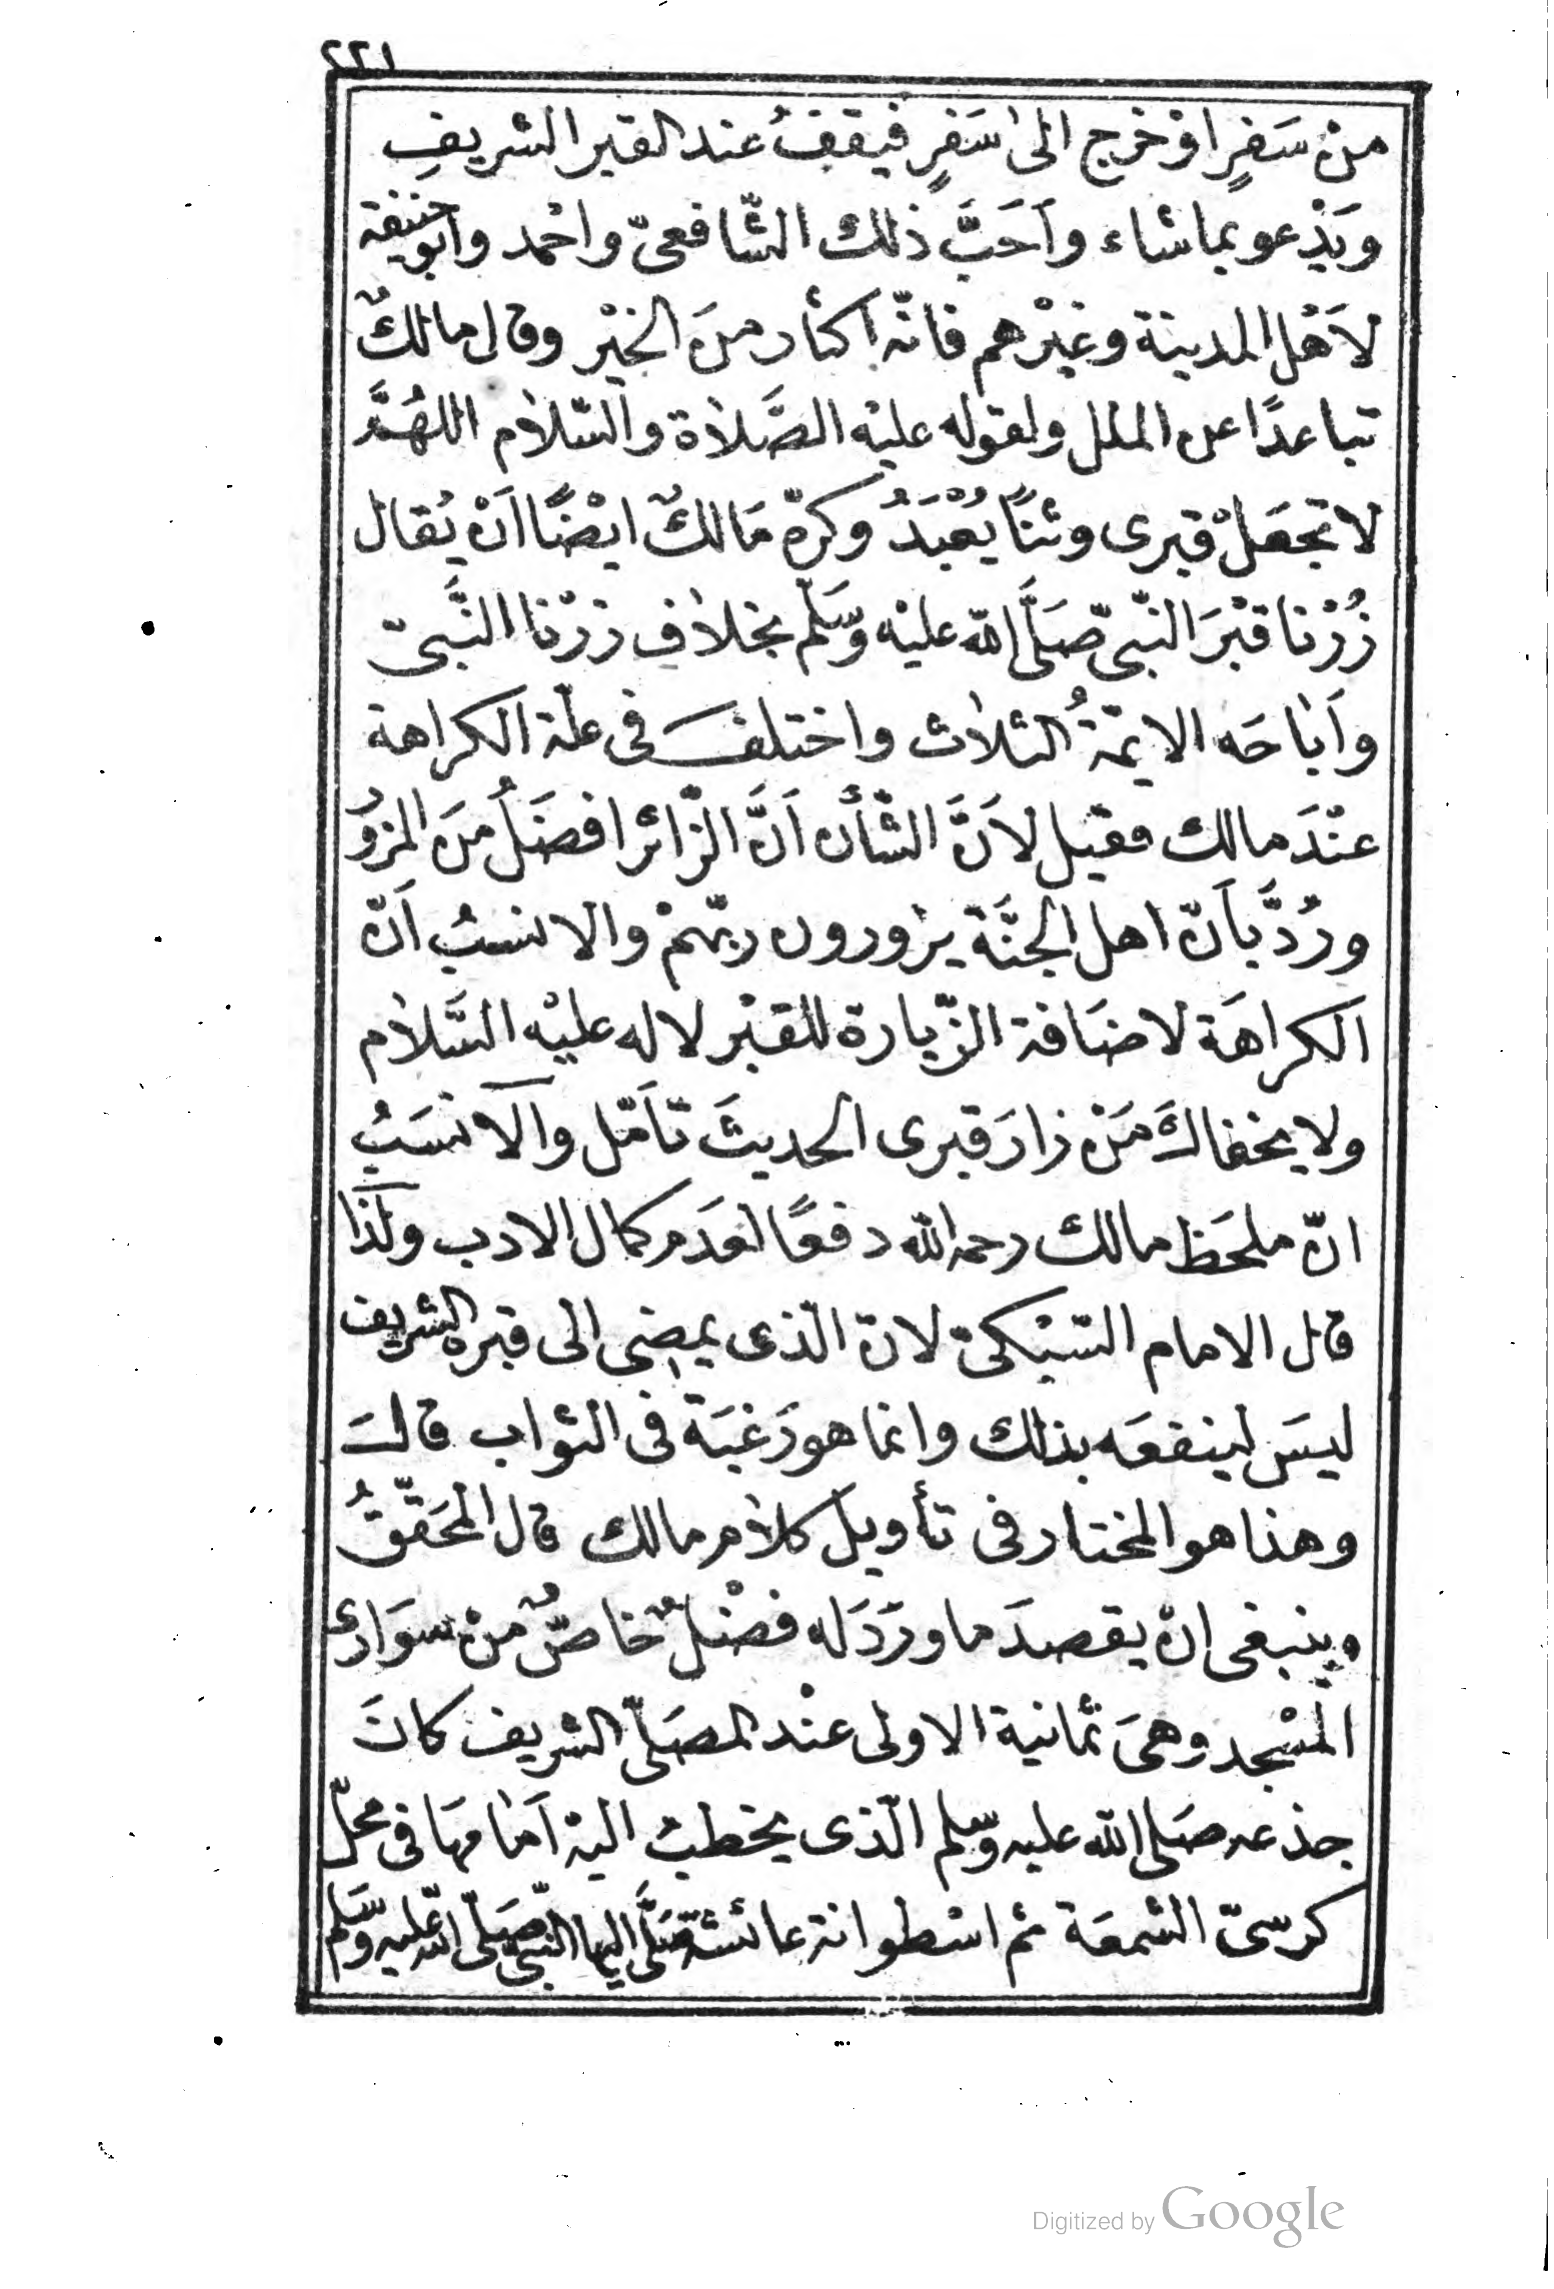 ٢٢١
منْ سَفرٍ اوْ خرج الىٰ سَفرٍ فيقفُ عند القبر الشريفِ
ويَدْعو بما شاء وأَحَبَّ ذلك الشّافعىّ واحْمد وابو حنيفة
لاَهْل المدينة وغيْرهم فانّه اكثار منَ الخيْر وقال مالكٌ
تباعدًا عن الملل ولقوله عليْه الصَّلاٰة والسّلاٰم اللهُمَّ
لا تجعَلْ قبرى وثنًا يُعْبَدُ وكرّه مَالكٌ ايْضًا اَنْ يُقال
زُرْنا قبْرَ النّبىّ صَلَّى اللّه عليْه وَسَلّم بخلاٰفِ زرْنا النَّبىّ
وأَباحَه الايمّةُ الثلاٰث واختلفَ فى علّة الكراهة
عنْدَ مالك فقيل لاَنَّ الشّأن اَنَّ الزّائر افضَلُ منَ المزُور
ورُدَّ بأَنّ اهل الجنَّة يزورون ربّهمْ والانسبُ اَنّ
الكراهَة لاضَافة الزّيارة للقبْر لا له عليْه السَّلاٰم
ولا يخفاكَ مَنْ زارَ قبرى الحديثَ تأَمّل والاَنسَبُ
انّ ملحَظ مالك رحمه اللّه دفعًا لعَدَم كمال الادب ولذا
قال الامام السّبْكىّ لانّ الّذى يمضى الى قبره الشريف
ليسَ لينفعَه بذلك وانما هو رَغبَة فى الثواب قالَ
وهذا هو المختار فى تأويل كلاٰم مالك قال المحَقّقُ
وينبغى انْ يقصدَ ما ورَدَ له فضْلٌ خاصٌّ منْ سوَارى
المسْجد وهىَ ثمانية الاولى عنْد المصَلّى الشريف كانَ
جذعه صَلى اللّه عليه وسّلم الّذى يخطب اليْه اَمامهَا فى محلّ
كرسىّ الشمعَة ثم اسْطوانة عائشة صَلَّى اليها النّبىّ صَلّى اللّه عليه وَسَلم
Digitized by Google